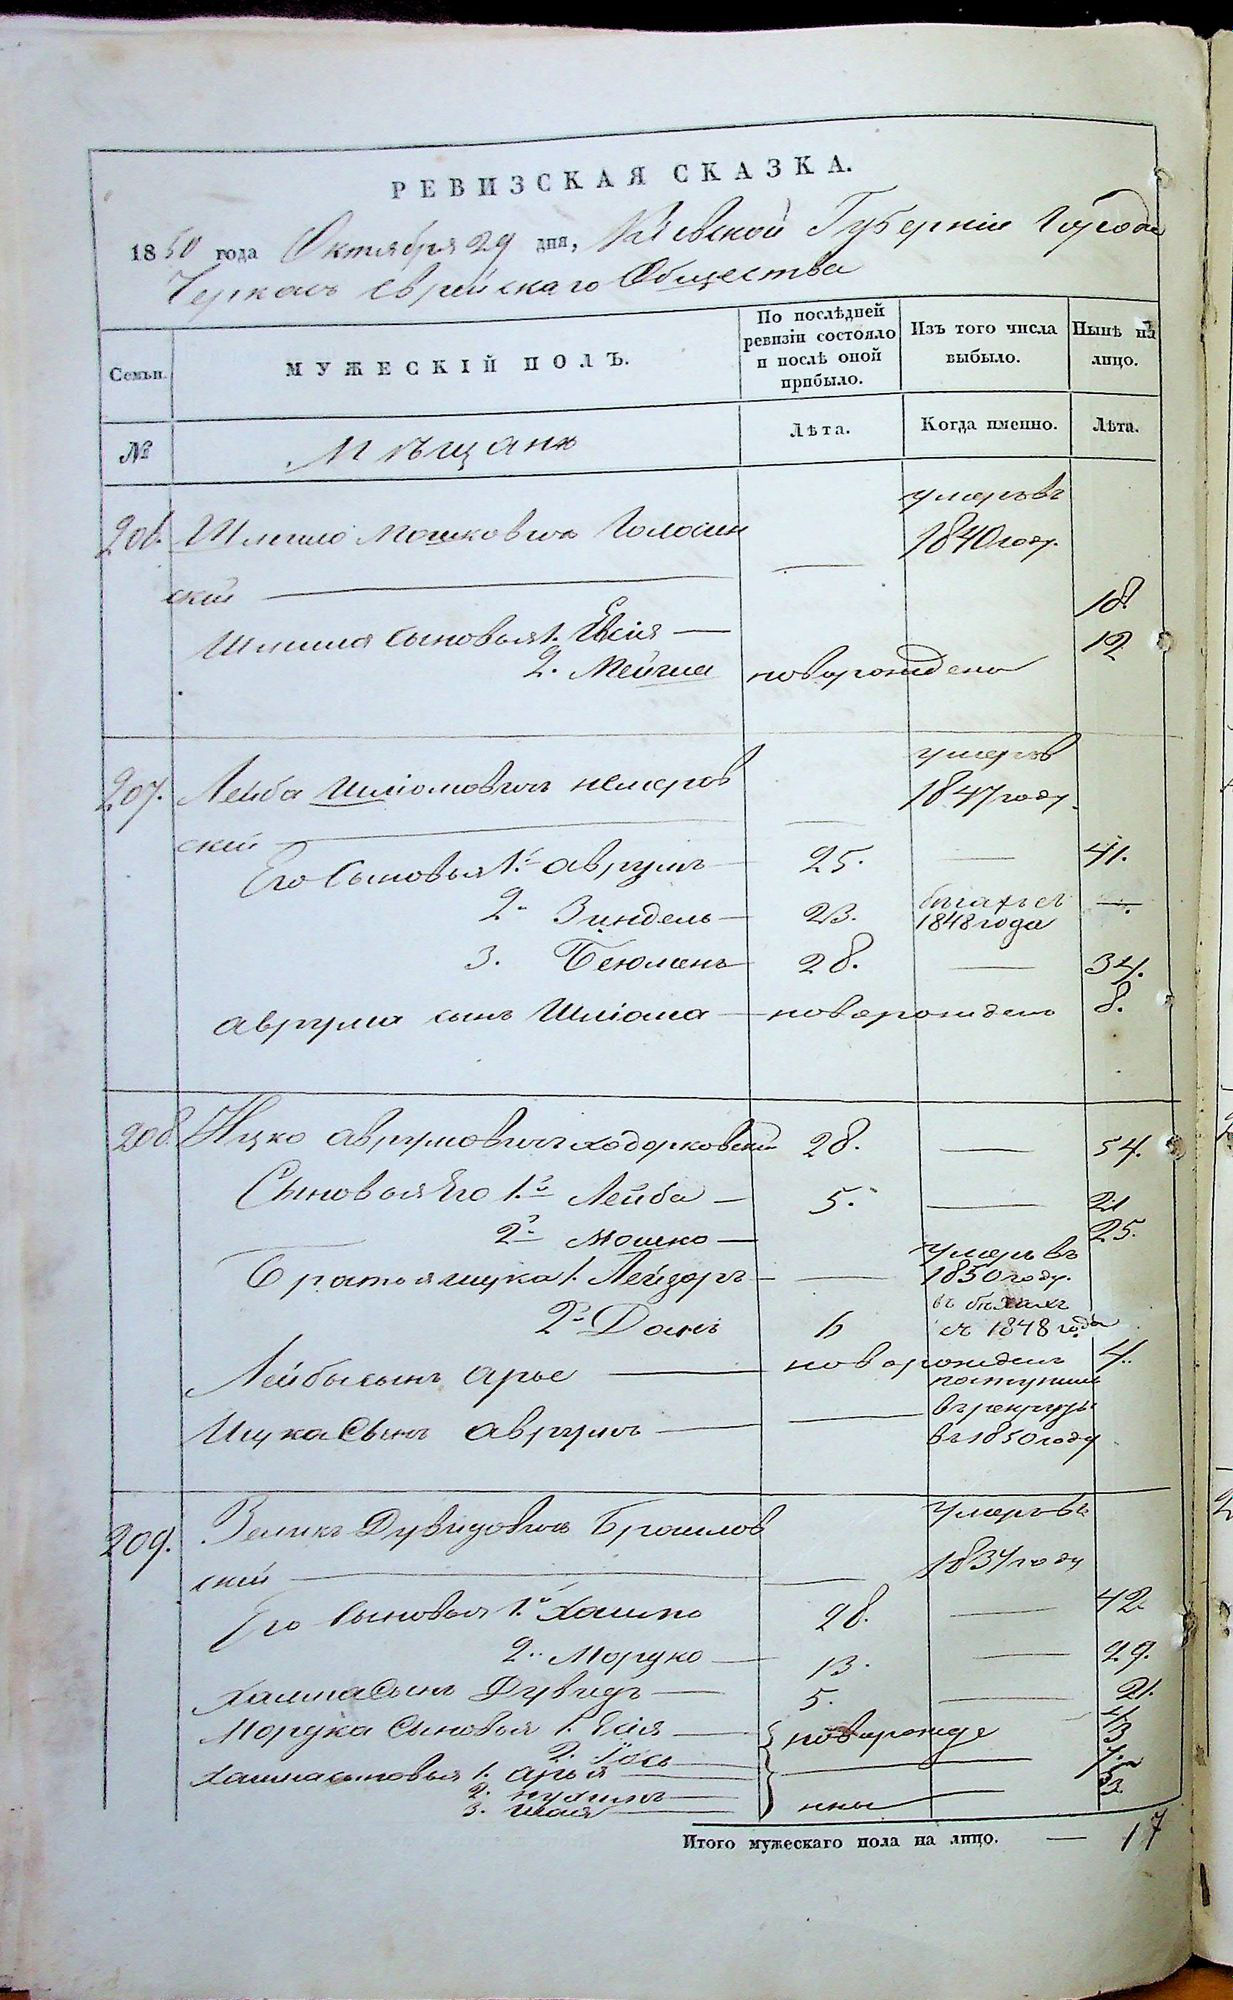 РЕВИЗСКАЯ СКАЗКА.
1850 года Октября 29 дня, Кіевской Губерніи Города
Черкасъ Еврейскаго Общества
Семьи.
МУЖЕСКІЙ ПОЛЪ.
По послѣдней ревизіи состояло и послѣ оной прибыло.
Изъ того числа выбыло.
Нынѣ на лицо.
№
Мѣщане
Лѣта.
Когда именно.
Лѣта.
206. Мошковичъ Голосин умеръ въ
ский — — 1840 году.
сыновья 1. Евсія — 18
2. новорожденъ 12
207. Лейба Шліомовичъ Немеров умеръ въ
ский — — 1847 году.
Его сыновья 1й Аврумъ — 25. — 41.
2. Зиндель — 23. бѣгахъ съ 1848 года —.
3. — 28. — 34.
Аврума сынъ Шліома — новорожденъ 8.
208. Ицко Аврумовичъ Ходорковский 28. — 54.
Сыновья Его 1й Лейба — 5. — 21
2й Мошко — 25.
Братья Ицка 1. Лейзоръ — — умеръ въ 1850 году.
2й Данъ 6 въ бѣгахъ съ 1848 года
Лейбы сынъ Арье — новорожденъ 4.
Ицка Сынъ Аврумъ — — поступилъ в рекруты въ 1850 году
209. Зеликъ Дувидовичъ Браилов умеръ въ
ский — — 1834 году
Его Сыновья 1й Хаимъ 28. — 42.
2. Мордко — 13. — 29.
Хаима Сынъ Дувидъ — 5. — 21.
Мордка Сыновья 1. Есія — новорожде 4
2. Іось — 3
Хаима сыновья 1. Арья — — 7
2. Нухимъ —
3. Шая — нны — 3
Итого мужескаго пола на лицо. — 17